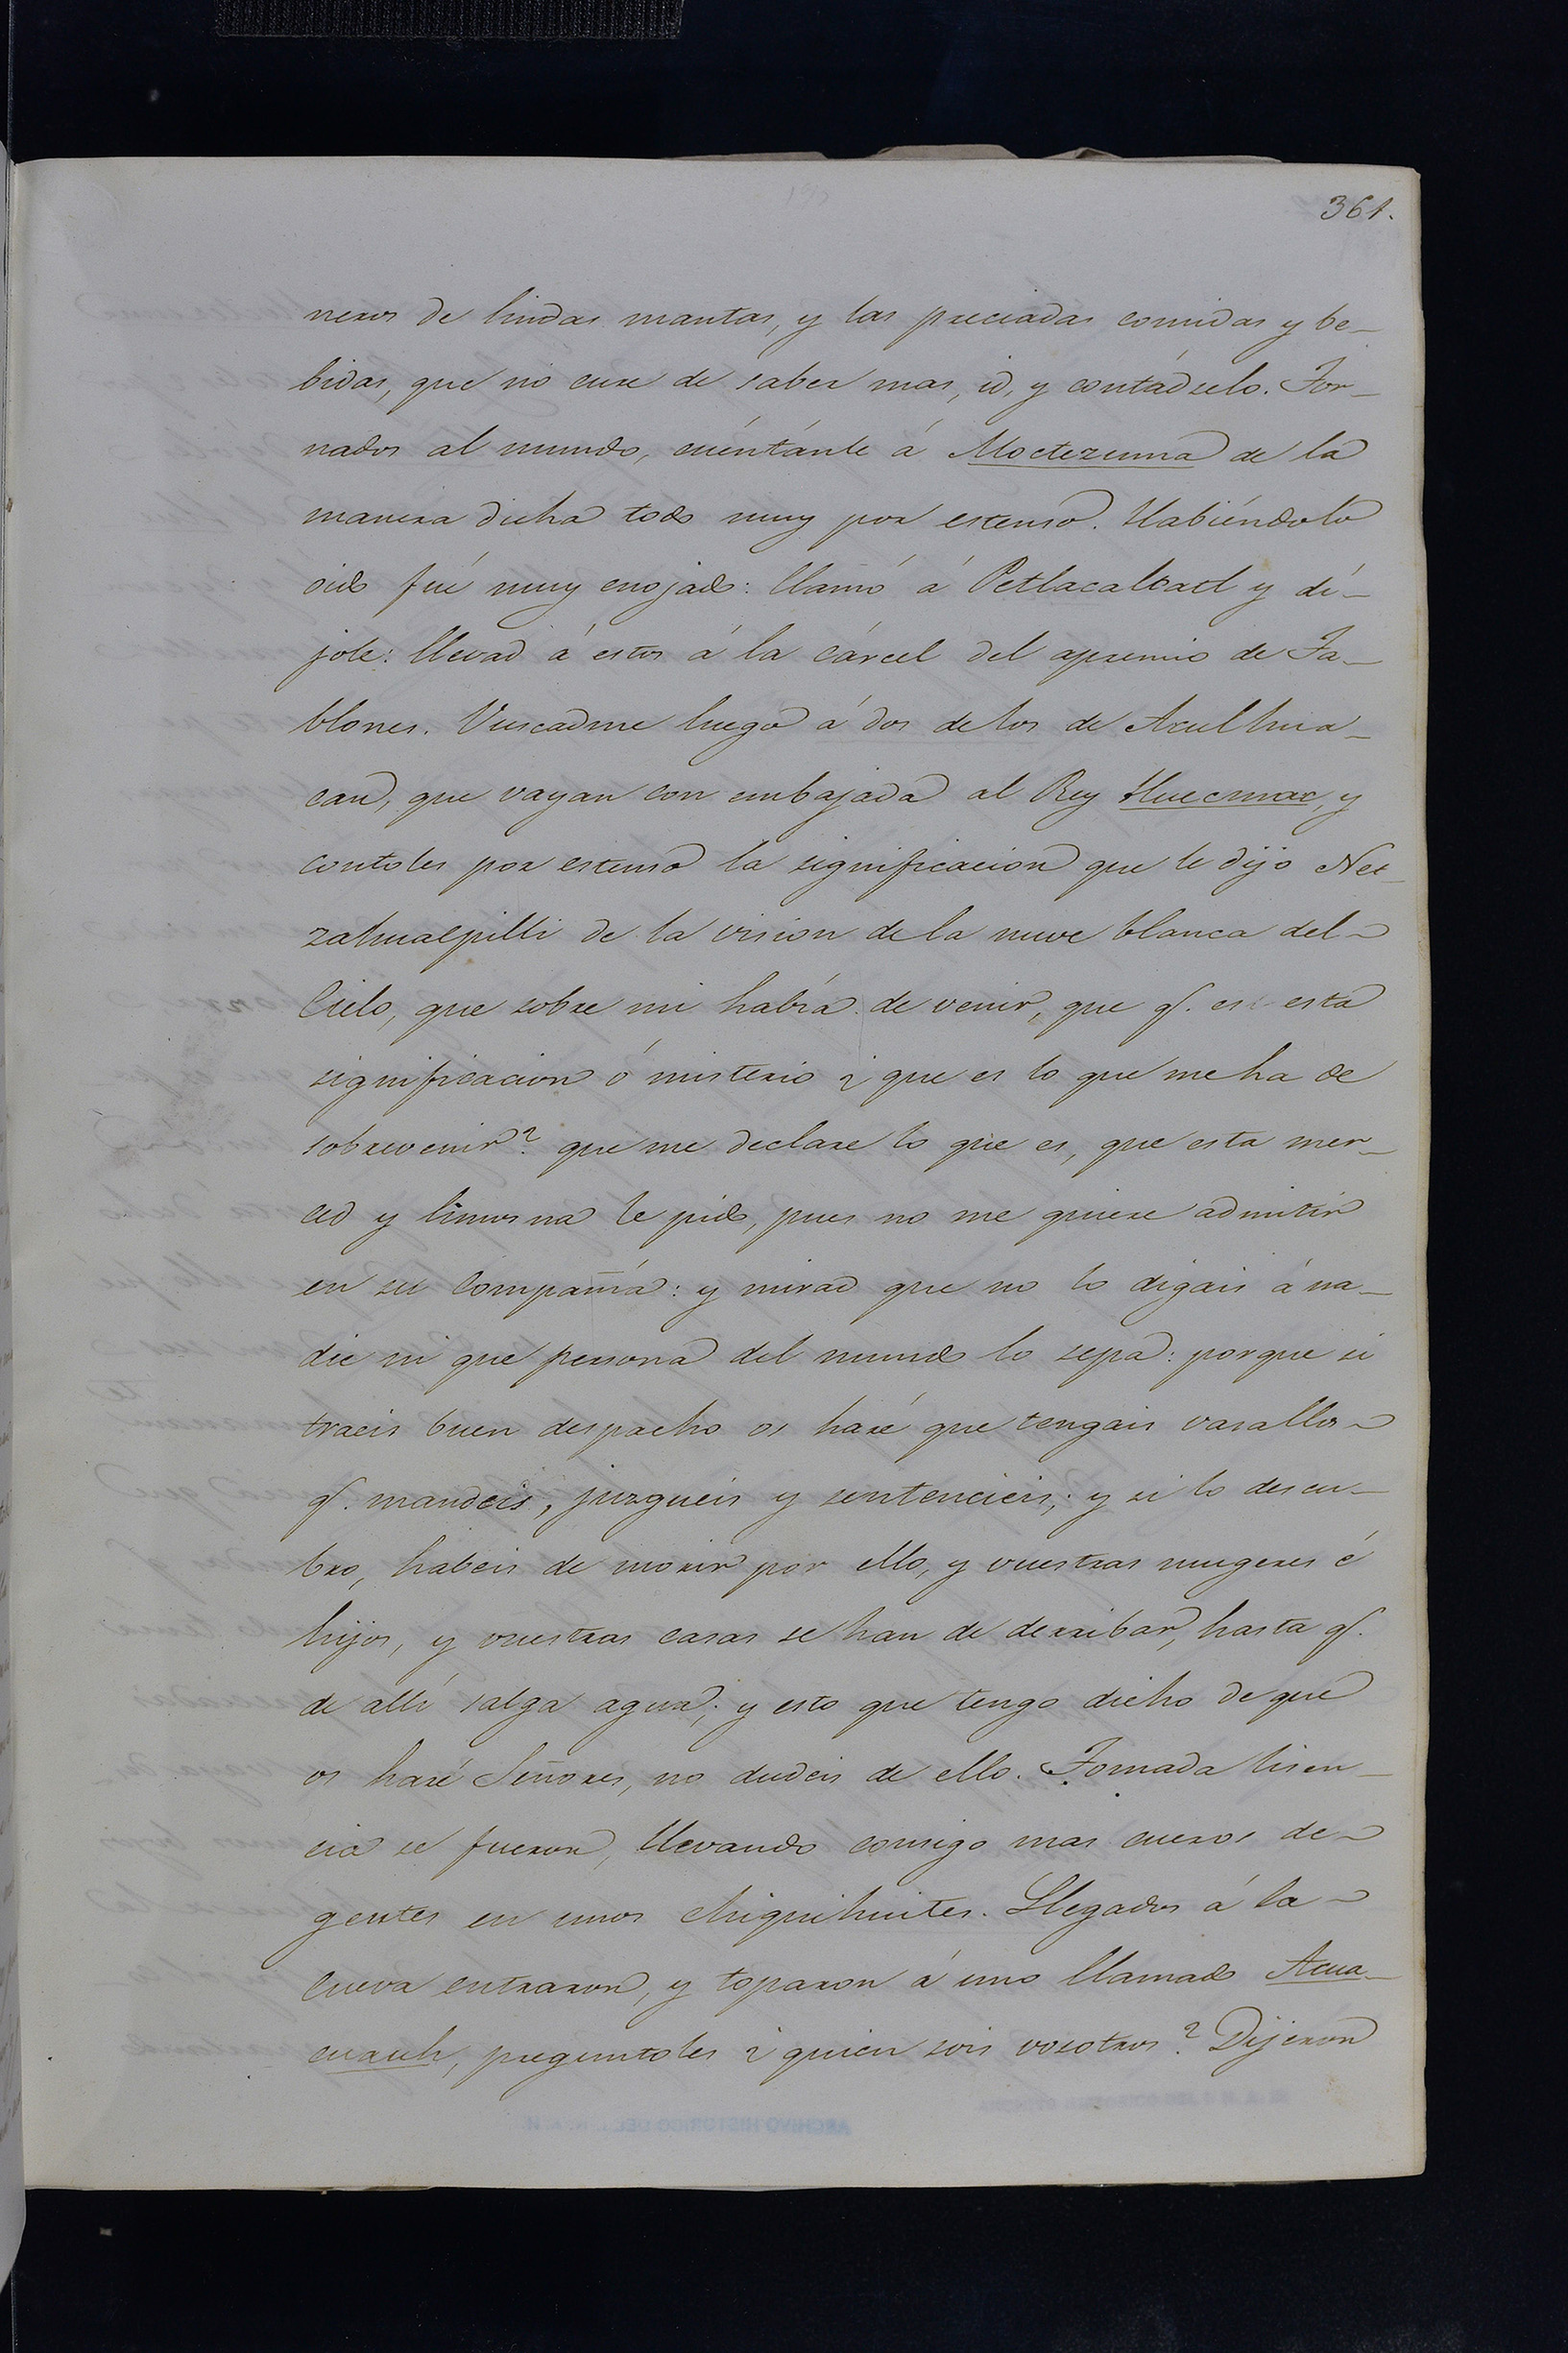 361.
neros de lindas mantas, y las preciadas comidas y be-
bidas, que no cure de saber mas, id, y contádselo. Tor-
nados al mundo, cuéntánle á Moctezuma de la
manera dicha todo muy por estenso. Habiéndolo
oido fué muy enojado: llamó á Petlacalcatl y dí-
jole: llevad á estos á la cárcel del apremio de Ta-
blones. Vuscadme luego á dos de los de Aculhua-
can, que vayan con embajada al Rey Huecmac, y
contoles por estenso la significacion que le dijo Net-
zahualpilli de la vision de la nuve blanca del
Cielo, que sobre mi habia de venir, que q. es esta
significacion ó misterio ¿que es lo que me ha de
sobrevenir? que me declare lo que es, que esta mer-
ced y limosna le pido, pues no me quiere admitir
en su Compañía: y mirad que no lo digais á na-
die ni que persona del mundo lo sepa: porque si
traeis buen despacho os haré que tengais vasallos
q. mandeis, juzgueis y sentencieis; y si lo descu-
bro, habeis de morir por ello, y vuestras mugeres é
hijos, y vuestras casas se han de derribar, hasta q.
de allí salga agua; y esto que tengo dicho de que
os haré Señores, no dudeis de ello. Tomada lisen-
cia se fueron, llevando consigo mas cueros de
gentes en unos chiquihuites. Llegados á la
cueva entraron, y toparon á uno llamado Acua-
cuauh, preguntoles ¿quien sois vosotros? Dijeron